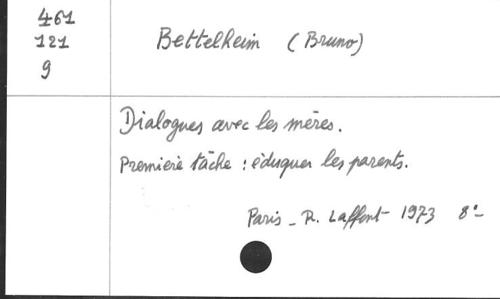 461
121
9
Bettelheim (Bruno)
Dialogues avec les mères.
Première tâche : éduquer les parents.
Paris - R. Laffont 1973 8°-